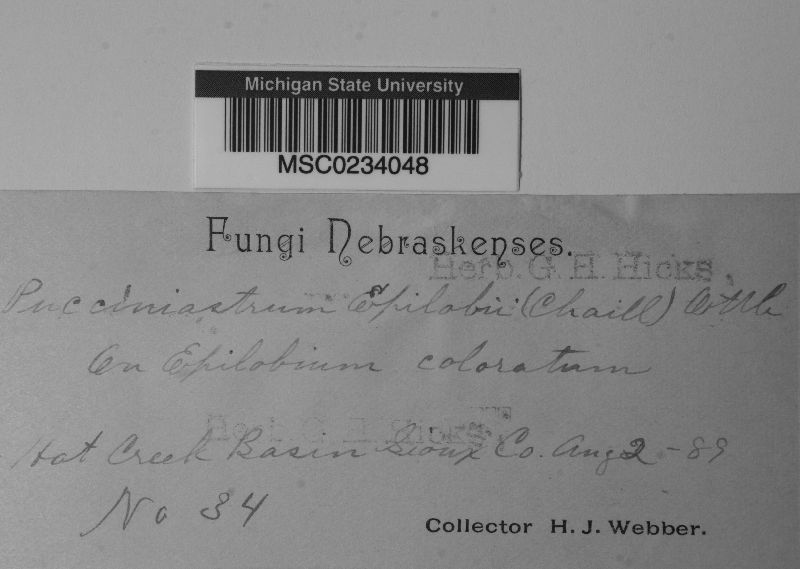 Michigan State University
MSC0234048
Fungi Nebraskenses.
Herb. G. H. Hicks,
Pucciniastrum Epilobii (Chaill) Otth
On Epilobium coloratum
Herb. G. H. Hicks,
Hat Creek Basin Sioux Co. Aug 2 - 89
No 34
Collector H. J. Webber.